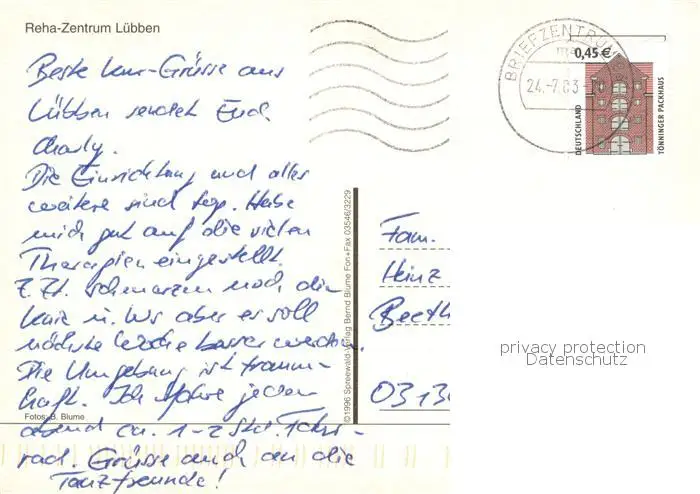 Reha-Zentrum Lübben
Beste Kur-Grüsse aus
Lübben sendet Euch
Charly.
Die Einrichtung und alles
weitere sind top. Habe
mich gut auf die vielen
Therapien eingestellt.
Z. Zt. schmerzen noch die
Knie u. Ws aber es soll
nächste Woche besser werden.
Die Umgebung ist traum-
haft. Ich fahre jeden
Abend ca. 1-2 Std Fahr-
rad. Grüsse auch an die
Tanzfreunde!
Fotos: B. Blume
©1996 Spreewald-Verlag Bernd Blume Fon+Fax 03546/3229
BRIEFZENTRUM
24.-7.03
0,45 €
DEUTSCHLAND
TÖNNINGER PACKHAUS
Fam.
Heinz
Beeth
0313
privacy protection
Datenschutz